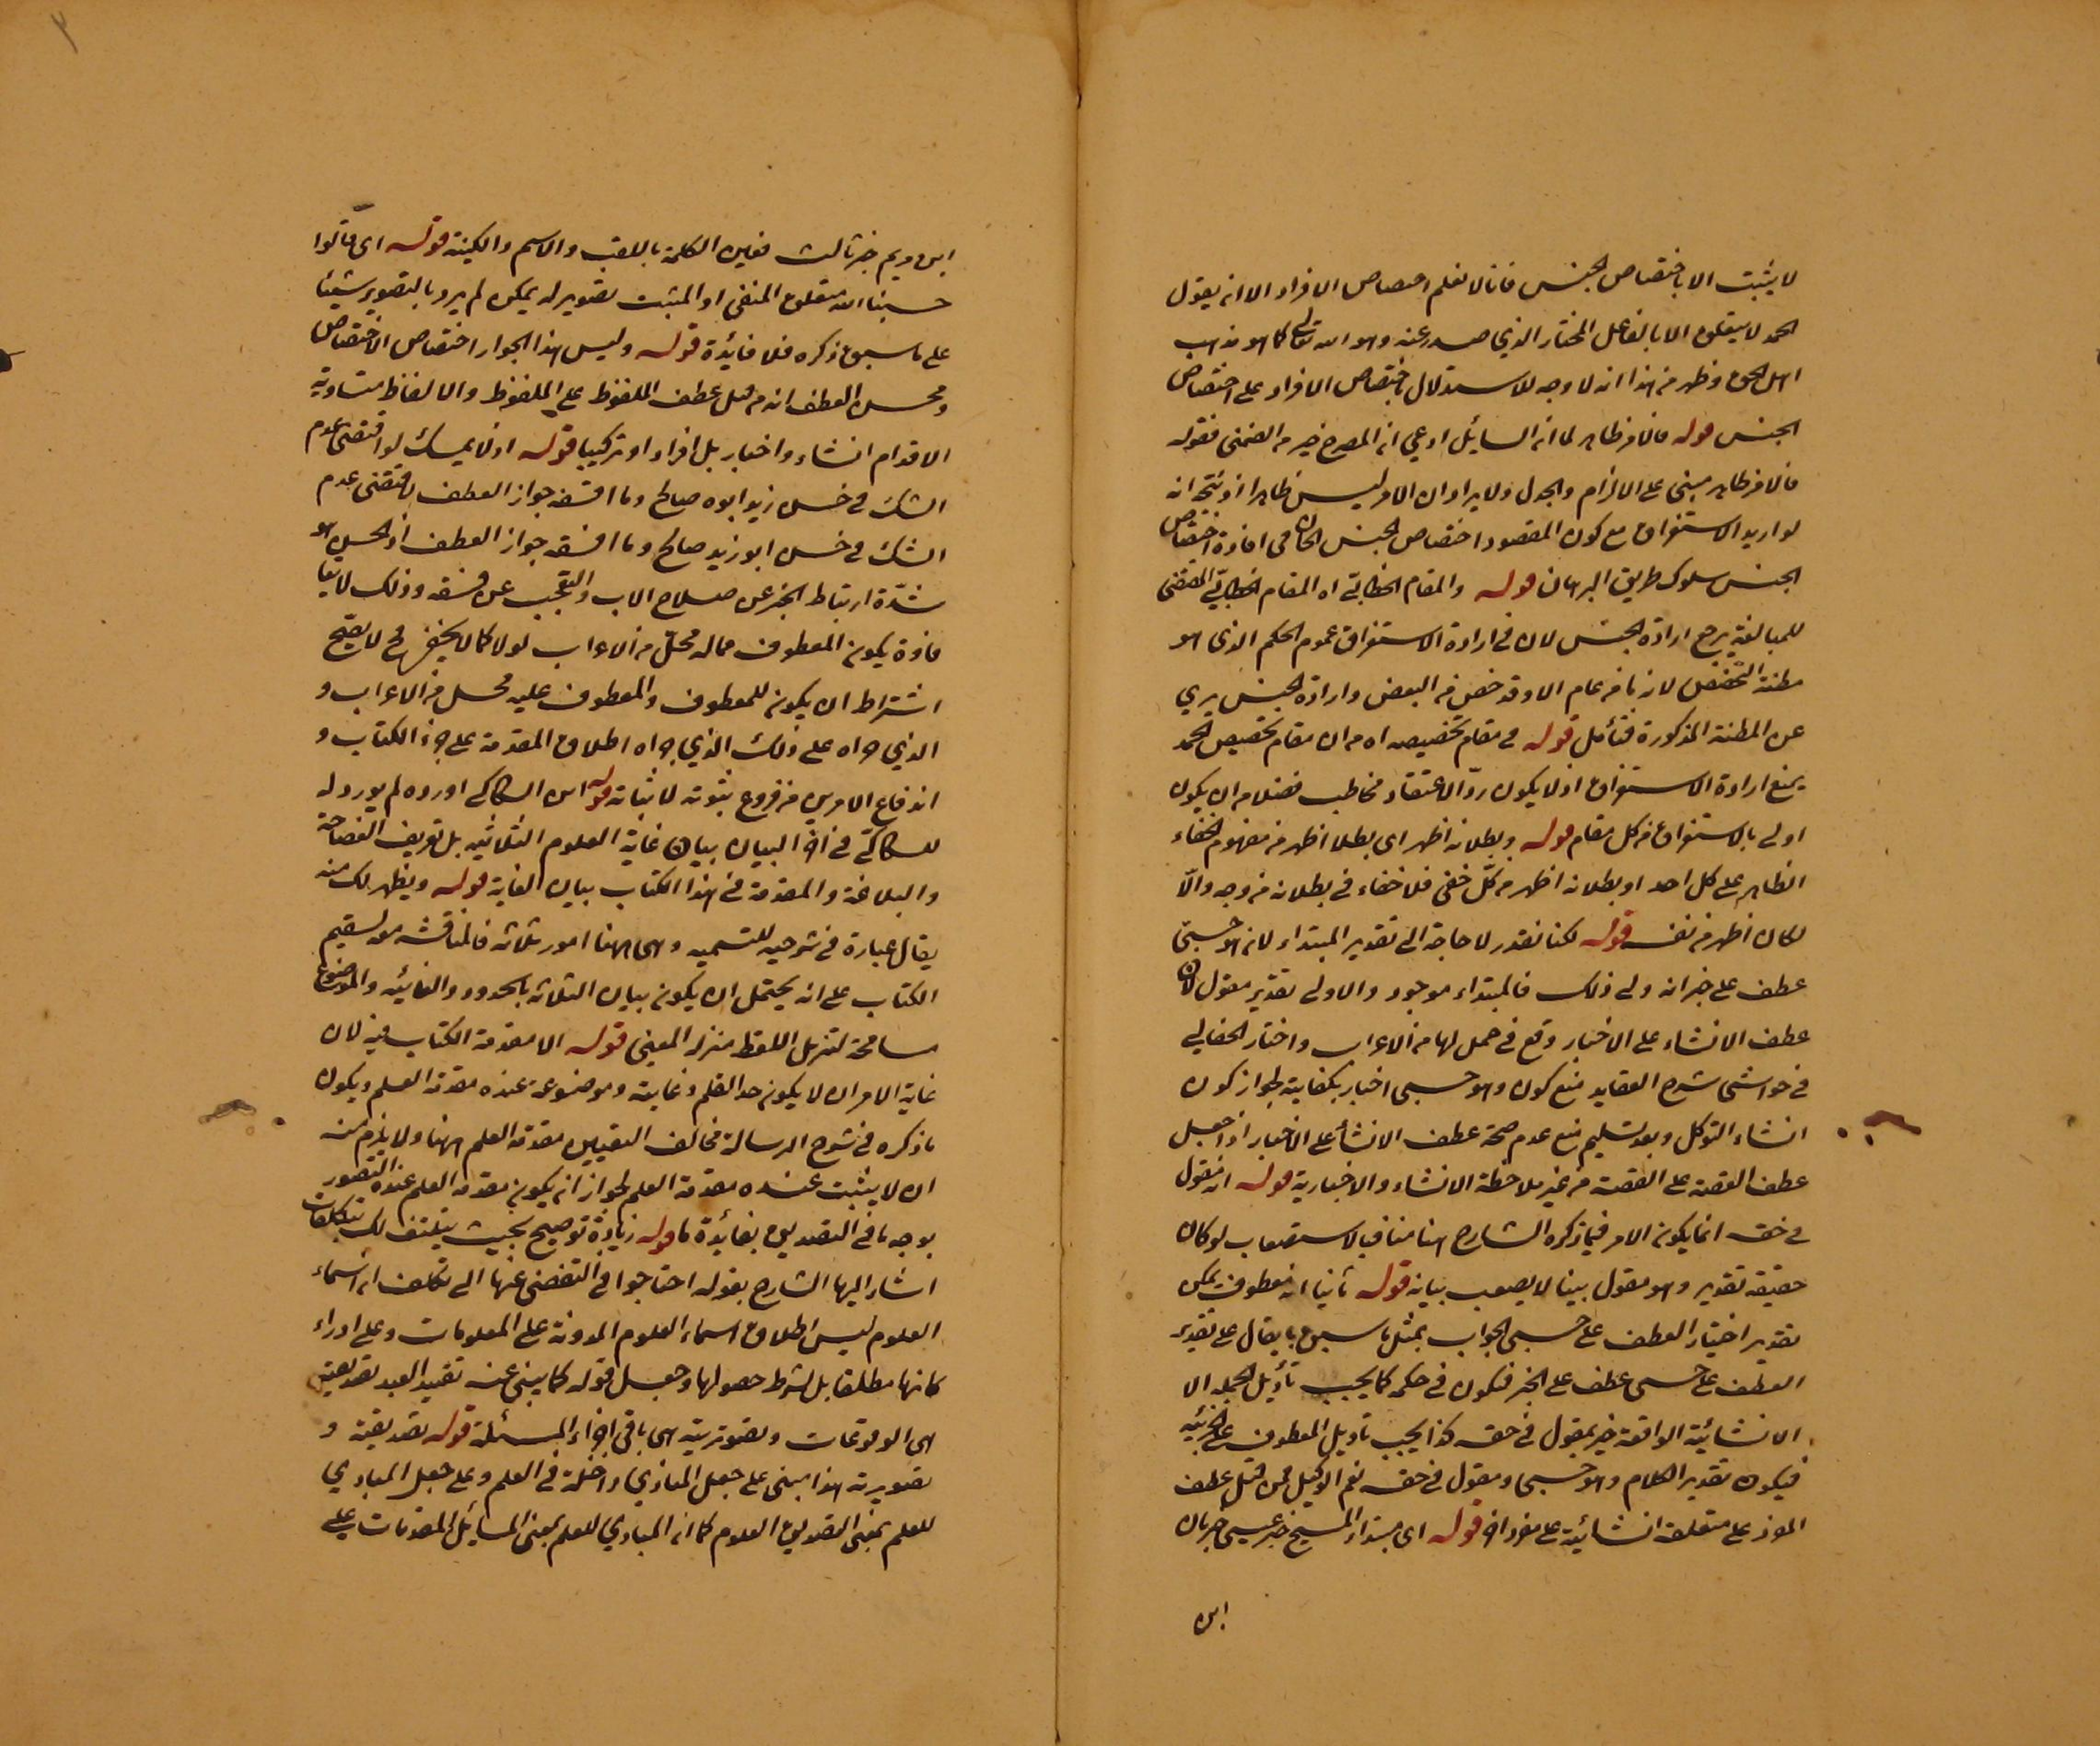 لا يثبت الا باختصاص الجنس فانا لا نعلم اختصاص الافراد الا انه يقول
الحمد لا يتعلق الا بالفاعل المختار الذي صدر عنه وهو الله تعالى كما هو مذهب
اهل الحق وظهر من هذا انه لا وجه للاستدلال باختصاص الافراد على اختصاص
الجنس قوله فالامر ظاهر لما انه السائل ادعى ان الصريح خير من الضمني فقوله
فالامر ظاهر مبني على الالزام والجدل ولا يراد ان الامر ليس ظاهرا اذ يتجه انه
لو اريد الاستغراق مع كون المقصود اختصاص الجنس لكان في افادة اختصاص
الجنس سلوك طريق البرهان قوله والمقام الخطابي اه المقام الخطابي المقتضى
للمبالغة يرجع ارادة الجنس لان في ارادة الاستغراق عموم الحكم الذي هو
مظنة التخصص لانه ما من عام الا وقد خص منه البعض وارادة الجنس بري
عن المظنة المذكورة فتأمل قوله في مقام تخصيصه اه من ان مقام تخصيص الحمد
يمنع ارادة الاستغراق اذ لا يكون ردّ الاعتقاد مخاطب فضلا من ان يكون
اولى بالاستغراق من كل مقام قوله وبطلانه اظهر اى بطلا اظهر من مفهوم الخفاء
الظاهر على كل احد او بطلانه اظهر من كل خفي فلا خفاء في بطلانه من وجه والّا
لكان اظهر من نفسه قوله لكنا نقدر لا حاجة الى تقدير المبتداء لانه هو حسبي
عطف على خبر انه ولى ذلك فالمبتداء موجود والاولى تقدير مقول لان
عطف الانشاء على الاخبار وقع في جمل لها من الاعراب واختار الخيالي
في حواشى شرح العقايد منع كون وهو حسبي اخبار بكفايته لجواز كون
انشاء التوكل وبعد تسليم منع عدم صحة عطف الانشاء على الاخبار اذا جعل
عطف القصة على القصة من غير ملاحظة الانشاء والاخبارية قوله ان نقول
في حقه انما يكون الامر فيما ذكره الشارح هنا منافيا لاستصعاب لو كان
حقيقة تقدير وهو مقول بينا لا يصعب بيانه قوله ثانيا ان معطوف يمكن
تقدير اختيار العطف على حسبي الجواب بمثل ما سبق بان يقال على تقدير
العطف على حسبي عطف على الخبر فيكون في حكمه كما يجب تأويل الجملة الا
الانشائية الواقعة خبر بمقول في حقه كذا يجب تأويل المعطوف على الخبرية
فيكون تقدير الكلام وهو حسبي ومقول في حقه نعم الوكيل فمن قبيل عطف
المفرد على متعلقه انشائية على مفرد اخر قوله اى مبتداء المسيح خبر عيسى خبر بان
ابن
ابن مريم خبر ثالث فعين الكلمة باللقب والاسم والكنية قوله اى قالوا
حسبنا الله متعلق المنفي او المثبت تصوير له يمكن لم يرد بالتصوير شيئا
على ما سبق ذكره فلا فائدة قوله وليس هذا الجواز اختصاص الاختصاص
ومحسن العطف انه من قبيل عطف الملفوظ على الملفوظ والالفاظ متساوية
الاقدام انشاء واخبار بل افراد او تركيبا قوله اذ لا يمسك لو اقتضى عدم
الشك في حسن زيد ابوه صالح وما افسقه جواز العطف لاقتضى عدم
الشك في حسن ابو زيد صالح وما افسقه جواز العطف اذ الحسن هو
شدّة ارتباط الخبر عن صلاح الاب والتعجب عن فسقه وذلك لا يقا
فادة يكون المعطوف مما له محل من الاعراب لو لا كما لا يخفى فح لا يصح
اشتراط ان يكون للمعطوف والمعطوف عليه محل من الاعراب و
الذي جراه على ذلك الذي جراه اطلاق المقدمة على جزء الكتاب و
اندفاع الامرين من فروع ثبوته لا ثباته قوله اين السكاكي اورده لم يورد له
للسكاكي في اخر البيان بيان غاية العلوم الثلاثية بل تعريف الفصاحة
والبلاغة والمقدمة في هذا الكتاب بيان الغاية قوله ويظهر لك منه
يقال عبارة في توجيه للتسمية وهى ههنا امور ثلاثة فالمناقشة مولسقيم
الكتاب على انه يحتمل ان يكون بيان الثلاثة بالحدود والغائية والموضوع
مسامحة لتنزيل اللفظ منزلة المعنى قوله الا مقدمة الكتاب فيه لان
غاية الامر ان لا يكون حد العلم وغايته وموضوعه عنده مقدمة العلم ويكون
ما ذكره في شرح الرسالة مخالف التعيين مقدمة العلم ههنا ولا يلزم منه
ان لا يثبت عنده مقدمة العلم لجواز ان يكون مقدمة العلم عنده التصور
بوجه ما في التصديق بفائدة ما قوله زيادة توضيح بحيث ينكشف لك تكلفات
اشار اليها الشارح بقوله احتاجوا في التفصى عنها الى تكلف ان اسماء
العلوم ليس اطلاق اسماء العلوم المدونة على المعلومات وعلى ادراء
كانها مطلقا بل بشرط حصولها وجعل قوله كما ينبي عنه تقييد العبد تصديقية
هى الوقوعات وتصوّرية هى باقى اجزاء المسئلة قوله تصديقية و
تصورية هذا مبني على جعل المبادي داخلة في العلم وعلى جعل المبادي
للعلم بمعنى التصديق العلوم كما انه المبادي للعلم بمعنى المسائل المقدمات على